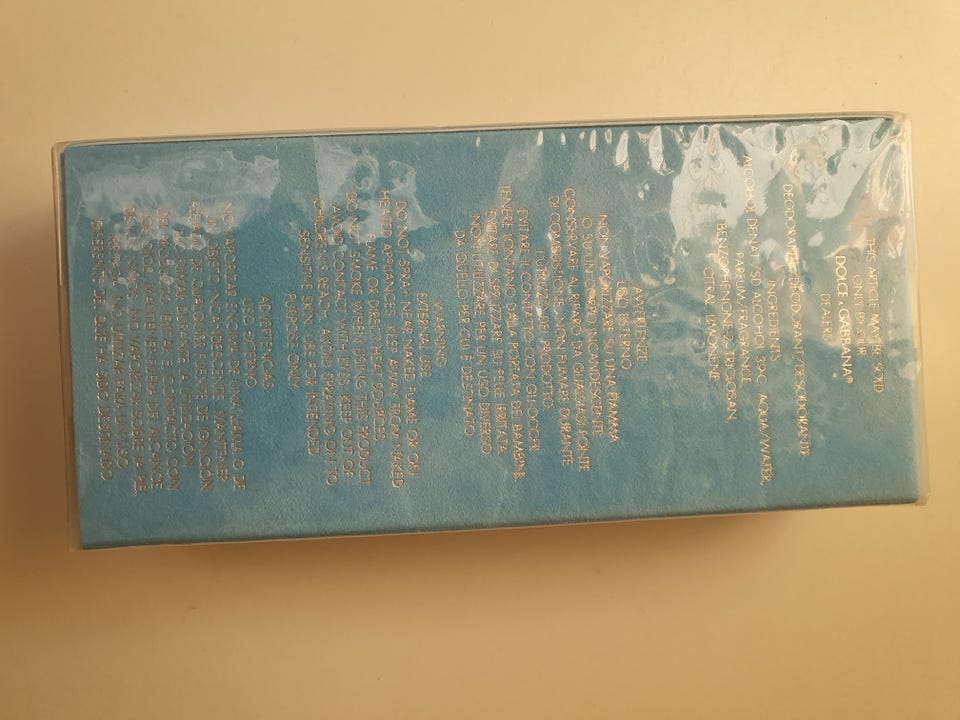 THIS ARTICLE MAY BE SOLD
ONLY BY OUR
DOLCE & GABBANA®
DEALERS
DEODORANTE/DEODORANT/DESODORANTE
INGREDIENTS:
ALCOHOL DENAT. (SD ALCOHOL 39-C), AQUA/WATER,
PARFUM/FRAGRANCE,
BENZOPHENONE-2, TRICLOSAN,
CITRAL, LIMONENE
AVVERTENZE:
USO ESTERNO.
NON VAPORIZZARE SU UNA FIAMMA
O SU UN CORPO INCANDESCENTE.
CONSERVARE AL RIPARO DA QUALSIASI FONTE
DI COMBUSTIONE. NON FUMARE DURANTE
L'UTILIZZO DEL PRODOTTO.
EVITARE IL CONTATTO CON GLI OCCHI.
TENERE LONTANO DALLA PORTATA DEI BAMBINI.
EVITARE DI SPRUZZARE SU PELLE IRRITATA.
NON UTILIZZARE PER UN USO DIVERSO
DA QUELLO PER CUI È DESTINATO.
WARNING:
EXTERNAL USE.
DO NOT SPRAY NEAR NAKED FLAME OR ON
HEATED APPLIANCES. KEEP AWAY FROM NAKED
FLAME OR DIRECT HEAT SOURCES.
DO NOT SMOKE WHEN USING THIS PRODUCT.
AVOID CONTACT WITH EYES. KEEP OUT OF
CHILDREN'S REACH. AVOID SPRAYING ON TO
SENSITIVE SKIN. USE FOR INTENDED
PURPOSE ONLY.
ADVERTENCIAS:
USO EXTERNO.
NO VAPORIZAR ENCIMA DE UNA LLAMA O DE
UN OBJETO INCANDESCENTE. MANTENER
DE CUALQUIER FUENTE DE IGNICIÓN.
NO FUMAR DURANTE LA UTILIZACIÓN
DEL PRODUCTO. EVITAR EL CONTACTO CON
LOS OJOS. MANTENER FUERA DEL ALCANCE
DE LOS NIÑOS. NO VAPORIZAR SOBRE LA PIEL
NO UTILIZAR PARA UN USO
DIFERENTE DEL QUE HA SIDO DESTINADO.